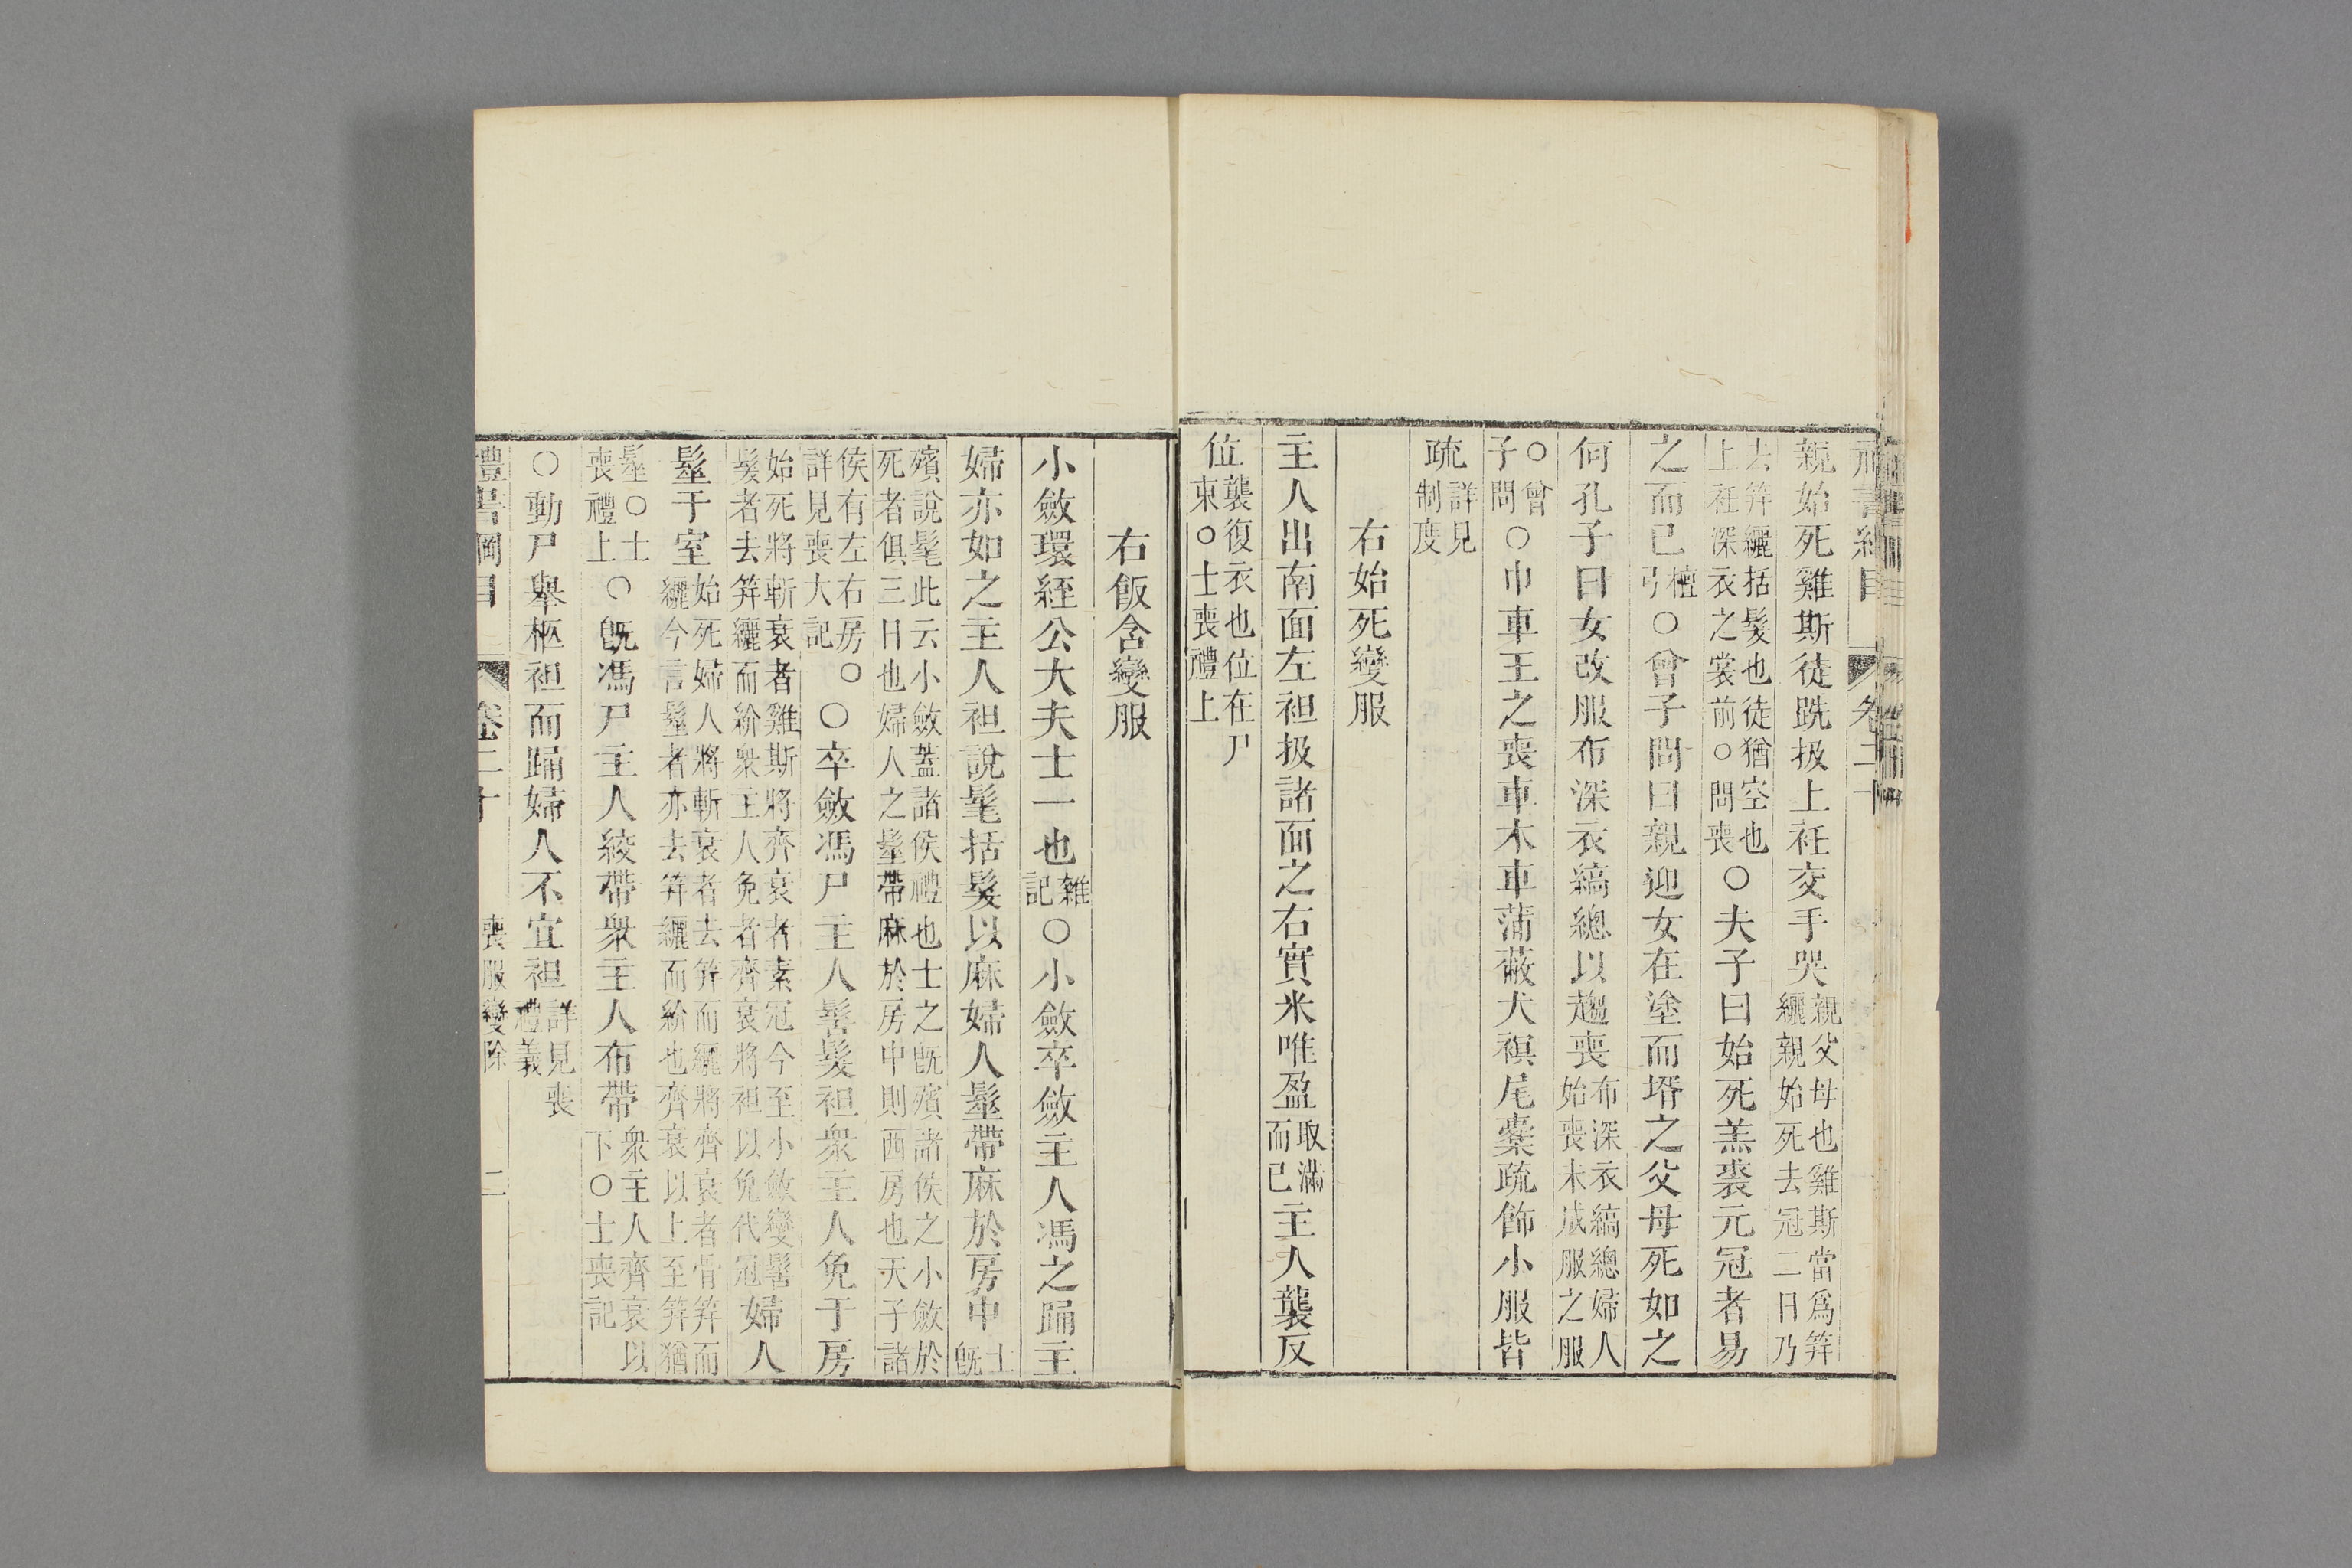 親始死雞斯徒跣扱上衽交手哭親父母也雞斯當爲笄纚親始死去冠二日乃
去笄纚括髮也徒猶空也上衽深衣之裳前○問喪○夫子曰始死羔裘元冠者易
之而已檀弓○曾子問曰親迎女在塗而壻之父母死如之
何孔子曰女改服布深衣縞總以趨喪布深衣縞總婦人始喪未成服之服
○曾子問○巾車王之喪車木車蒲蔽犬𧜀尾櫜疏飾小服皆
疏詳見制度
右始死變服
主人出南面左袒扱諸面之右實米唯盈取滿而已主人襲反
位襲復衣也位在尸東○士喪禮上
右飯含變服
小斂環絰公大夫士一也雜記○小斂卒斂主人馮之踊主
婦亦如之主人袒說髦括髮以麻婦人髽帶麻於房中士既
殯說髦此云小斂蓋諸侯禮也士之既殯諸侯之小斂於死者俱三日也婦人之髽帶麻於房中則西房也天子諸
侯有左右房○詳見喪大記○卒斂馮尸主人髻髮袒衆主人免于房
始死將斬衰者雞斯將齊衰者素冠今至小斂變髻髮者去笄纚而紒衆主人免者齊衰將袒以免代冠婦人
髽于室始死婦人將斬衰者去笄而纚將齊衰者骨笄而纚今言髽者亦去笄纚而紒也齊衰以上至笄猶
髽○士喪禮上○既馮尸主人絞帶衆主人布帶衆主人齊衰以下○士喪記
○動尸舉柩袒而踊婦人不宜袒詳見喪禮義
禮書綱目 卷二十 喪服變除 二